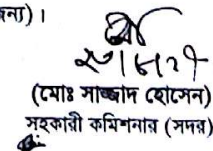 ন্য)।
(মোঃ সাজ্জাদ হোসেন)
সহকারী কমিশনার (সদর)